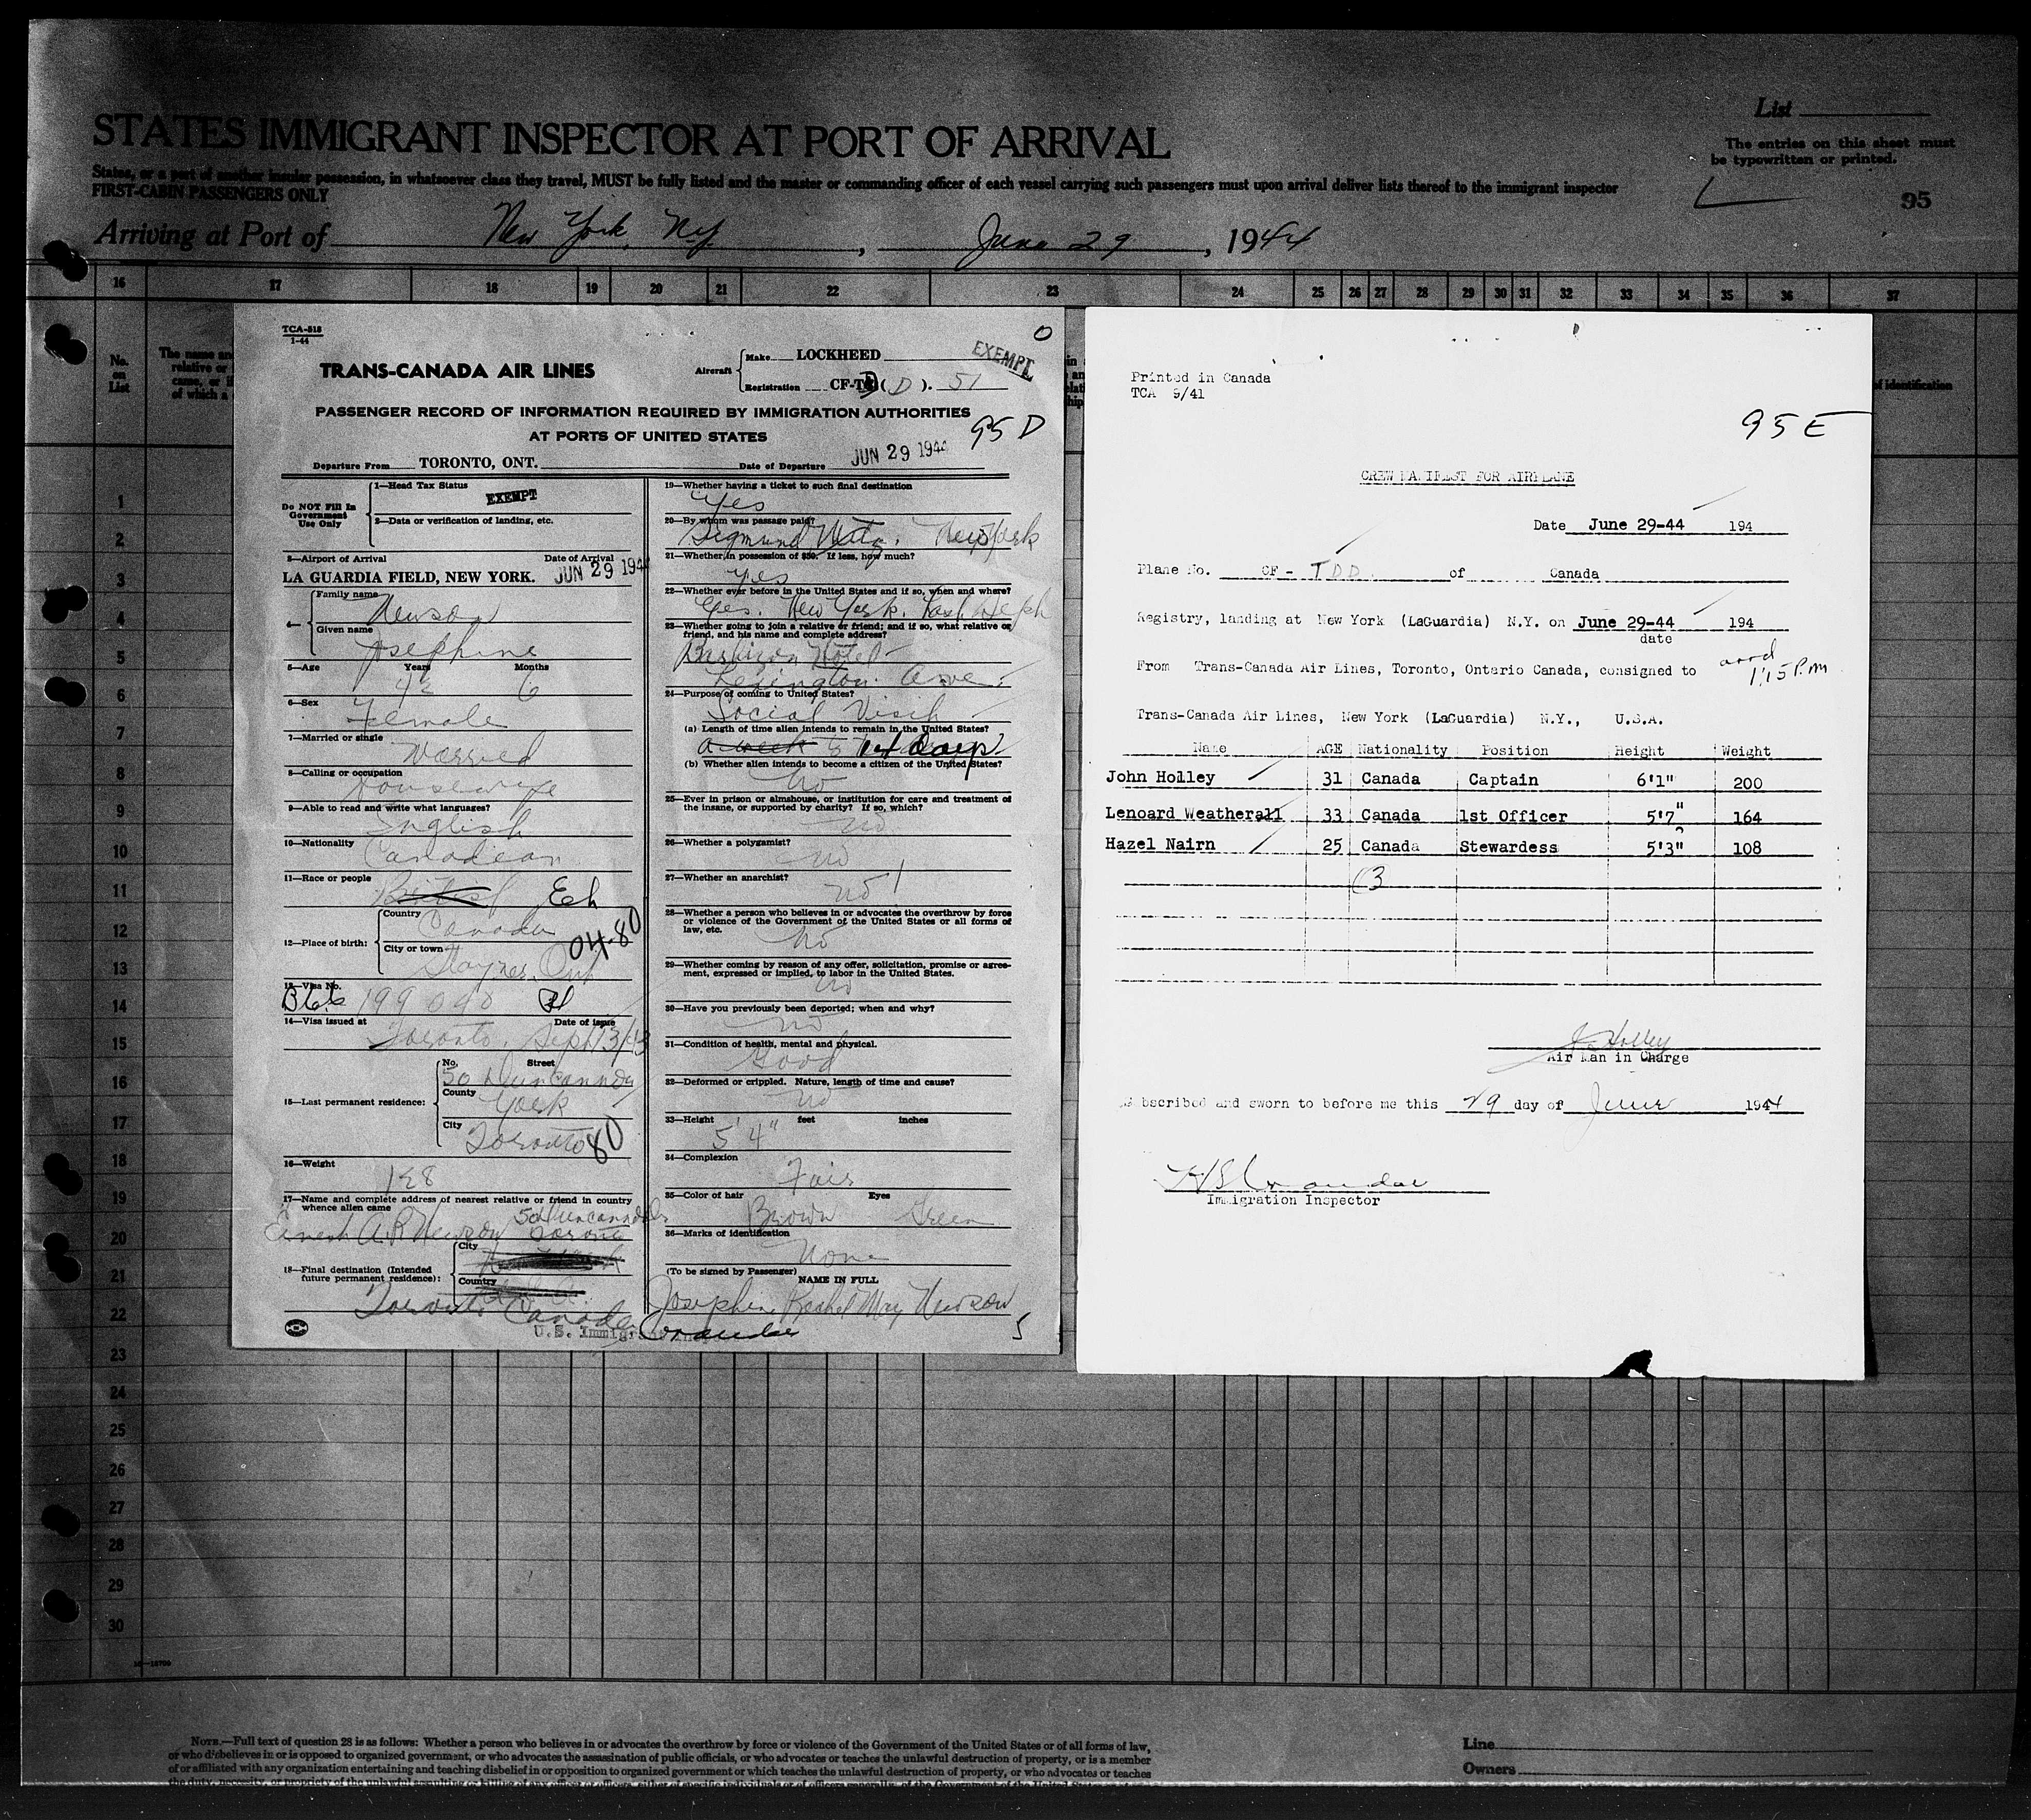 List
STATES IMMIGRANT INSPECTOR AT PORT OF ARRIVAL
The entries on this sheet must
be typewritten or printed.
States, or a part of another insular possession, in whatsoever class they travel, MUST be fully listed and the master or commanding officer of each vessel carrying such passengers must upon arrival deliver lists thereof to the immigrant inspector
FIRST-CABIN PASSENGERS ONLY
95
Arriving at Port of New York, N.Y. , June 29 , 1944
16 17 18 19 20 21 22 23 24 25 26 27 28 29 30 31 32 33 34 35 36 37
No.
on
List
The name and
relative or
came, or if
of which a
of identification
1
2
3
4
5
6
7
8
9
10
11
12
13
14
15
16
17
18
19
20
21
22
23
24
25
26
27
28
29
30
TCA-518
1-44
TRANS-CANADA AIR LINES
Aircraft
Make LOCKHEED
Registration CF-T (D). 51
EXEMPT
PASSENGER RECORD OF INFORMATION REQUIRED BY IMMIGRATION AUTHORITIES
AT PORTS OF UNITED STATES
95 D
Departure From TORONTO, ONT. Date of Departure JUN 29 1944
Do NOT Fill In
Government
Use Only
1—Head Tax Status
EXEMPT
2—Data or verification of landing, etc.
3—Airport of Arrival Date of Arrival
LA GUARDIA FIELD, NEW YORK. JUN 29 1944
4—
Family name
Newson
Given name
Josephine
5—Age Years Months
42 6
6—Sex
Female
7—Married or single
Married
8—Calling or occupation
Housewife
9—Able to read and write what languages?
English
10—Nationality
Canadian
11—Race or people
British Eng
12—Place of birth:
Country
Canada
City or town
04-80
Stayner, Ont
13—Visa No.
199040
14—Visa issued at Date of issue
Toronto. Sept 13/43
15—Last permanent residence:
No. Street
50 Duncannon
County
York
City
Toronto 80
16—Weight
128
17—Name and complete address of nearest relative or friend in country
whence alien came
50 Duncannon Dr
A. R. Newson Toronto
18—Final destination (Intended
future permanent residence):
City
Country
Toronto Canada
U.S. Immigrant
19—Whether having a ticket to such final destination
Yes
20—By whom was passage paid?
Sigmund New York
21—Whether in possession of $50. If less, how much?
yes
22—Whether ever before in the United States and if so, when and where?
Yes. New York.
23—Whether going to join a relative or friend; and if so, what relative or
friend, and his name and complete address?
Barbizon Hotel
Lexington Ave.
24—Purpose of coming to United States?
Social Visit
(a) Length of time alien intends to remain in the United States?
a week 14 days
(b) Whether alien intends to become a citizen of the United States?
No
25—Ever in prison or almshouse, or institution for care and treatment of
the insane, or supported by charity? If so, which?
No
26—Whether a polygamist?
No
27—Whether an anarchist?
No
28—Whether a person who believes in or advocates the overthrow by force
or violence of the Government of the United States or all forms of
law, etc.
No
29—Whether coming by reason of any offer, solicitation, promise or agree-
ment, expressed or implied, to labor in the United States.
No
30—Have you previously been deported; when and why?
No
31—Condition of health, mental and physical.
Good
32—Deformed or crippled. Nature, length of time and cause?
No
33—Height feet inches
5' 4"
34—Complexion
Fair
35—Color of hair Eyes
Brown Green
36—Marks of identification
None
(To be signed by Passenger)
NAME IN FULL
Josephine Rachel May Newson
Printed in Canada
TCA 9/41
95 E
CREW MANIFEST FOR AIRPLANE
Date June 29-44 194
Plane No. CF - TDD of Canada
Registry, landing at New York (LaGuardia) N.Y. on June 29-44 194
date
From Trans-Canada Air Lines, Toronto, Ontario Canada, consigned to
1:15 P.M
Trans-Canada Air Lines, New York (LaGuardia) N.Y., U.S.A.
Name AGE Nationality Position Height Weight
John Holley 31 Canada Captain 6'1" 200
Lenoard Weatherall 33 Canada 1st Officer 5'7" 164
Hazel Nairn 25 Canada Stewardess 5'3" 108
(3
J. Holley
Air Man in Charge
bscribed and sworn to before me this 29 day of June 1944
Immigration Inspector
NOTE.—Full text of question 28 is as follows: Whether a person who believes in or advocates the overthrow by force or violence of the Government of the United States or of all forms of law,
or who disbelieves in or is opposed to organized government, or who advocates the assassination of public officials, or who advocates or teaches the unlawful destruction of property, or is a member
of or affiliated with any organization entertaining and teaching disbelief in or opposition to organized government or which teaches the unlawful destruction of property, or who advocates or teaches
Line
Owners